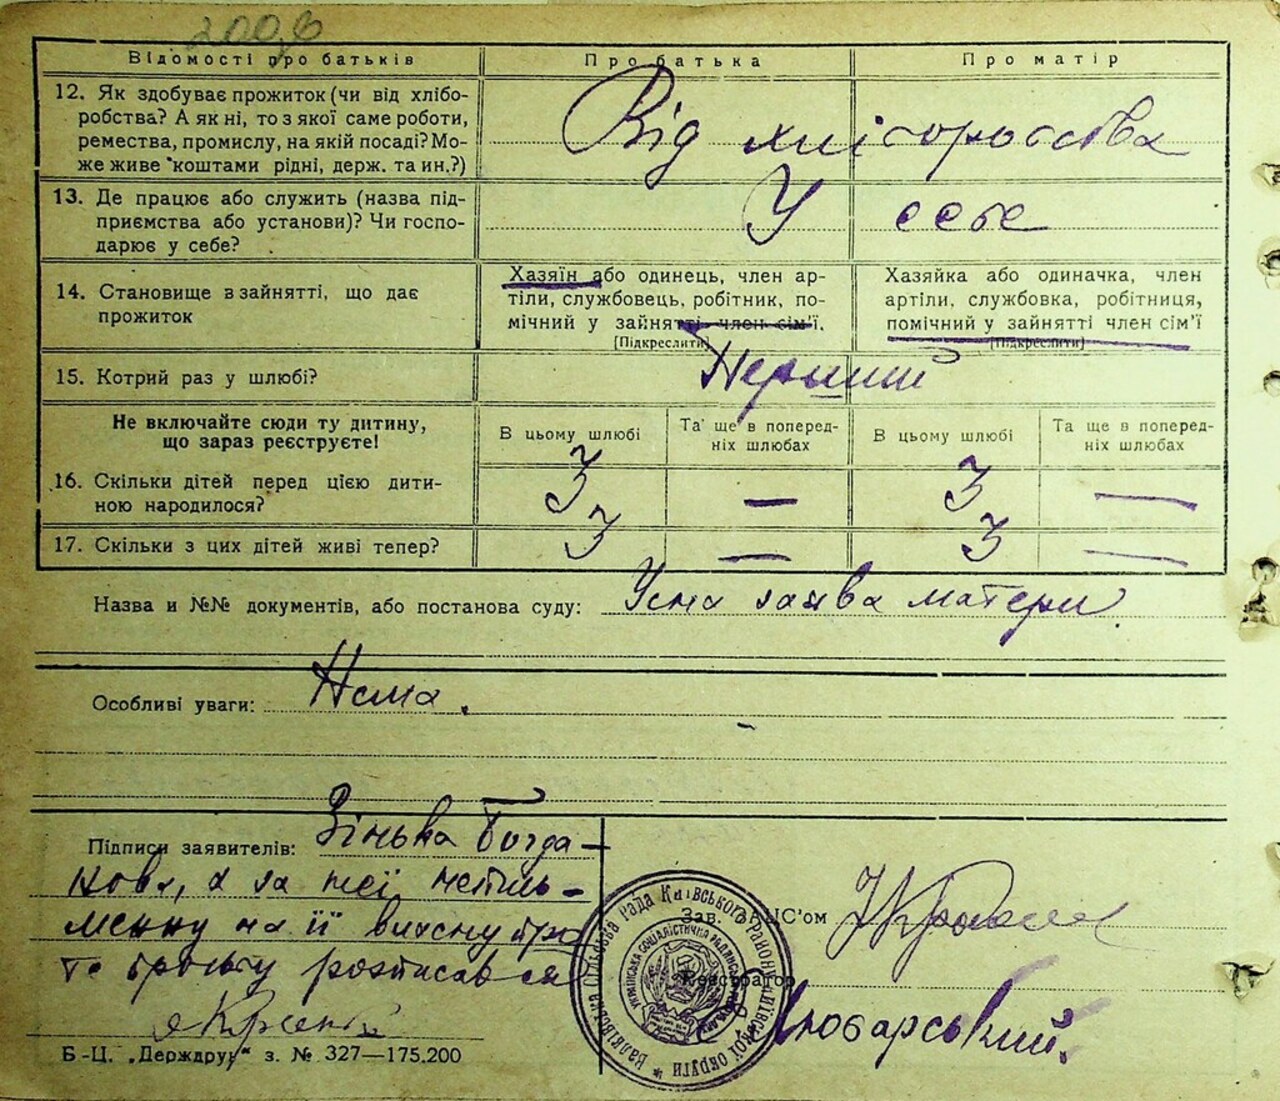 200,6
Відомості про батьків Про батька Про матір
12. Як здобуває прожиток (чи від хлібо-
робства? А як ні, то з якої саме роботи,
ремества, промислу, на якій посаді? Мо-
же живе коштами рідні, держ. та ин.?)
Від хліборобства
13. Де працює або служить (назва під-
приємства або установи)? Чи госпо-
дарює у себе?
У себе
14. Становище в зайнятті, що дає
прожиток
Хазяїн або одинець, член ар-
тіли, службовець, робітник, по-
мічний у зайнятті член сім'ї.
[Підкреслити]
Хазяйка або одиначка, член
артіли, службовка, робітниця,
помічний у зайнятті член сім'ї
[Підкреслити]
15. Котрий раз у шлюбі?
Перший
Не включайте сюди ту дитину,
що зараз реєструєте!
В цьому шлюбі
Та ще в поперед-
ніх шлюбах
В цьому шлюбі
Та ще в поперед-
ніх шлюбах
16. Скільки дітей перед цією дити-
ною народилося?
3 — 3 —
17. Скільки з цих дітей живі тепер?
3 — 3 —
Назва и №№ документів, або постанова суду: Усна заява матери.
Особливі уваги: Нема.
Підписи заявителів: Зінька Богда-
нова, а за неї неписьь-
менну на її власну про
розписався
Зав. ЗАГС'ом
Реєстратор
Любарський.
Б-Ц. „Держдрук“ з. № 327—175.200